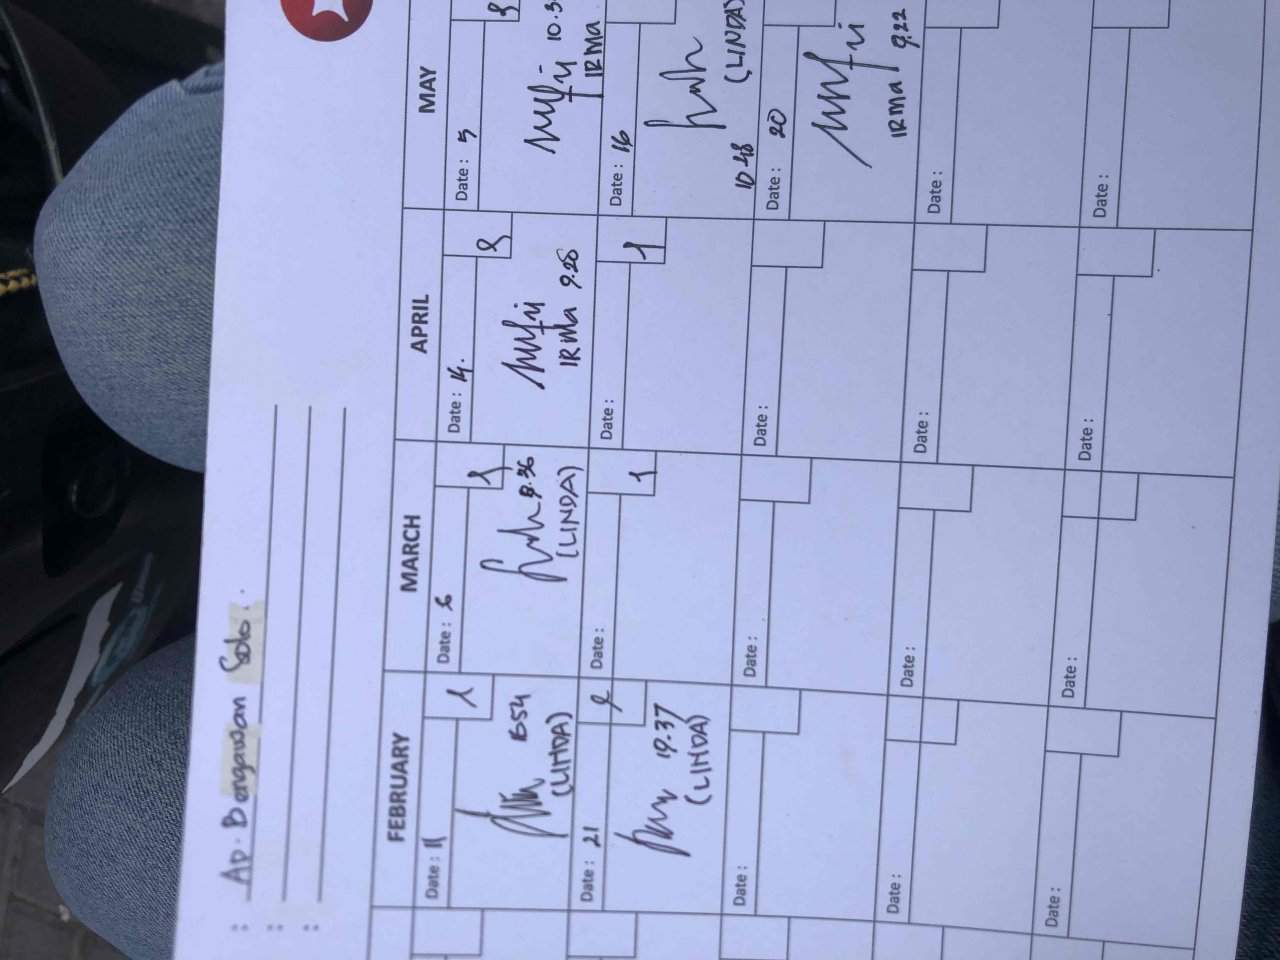 : Ap. Bengawan Solo.
:
:
FEBRUARY MARCH APRIL MAY
Date : 11
1554
(LINDA)
Date : 6
9.36
(LINDA)
Date : 14.
IRMA 9.28
Date : 5
IRMA
Date : 21
19.37
(LINDA)
Date :
1
Date :
1
Date : 16
10 48 (LINDA)
Date :
Date :
Date :
Date : 20
IRMA 9.22
Date :
Date :
Date :
Date :
Date :
Date :
Date :
Date :